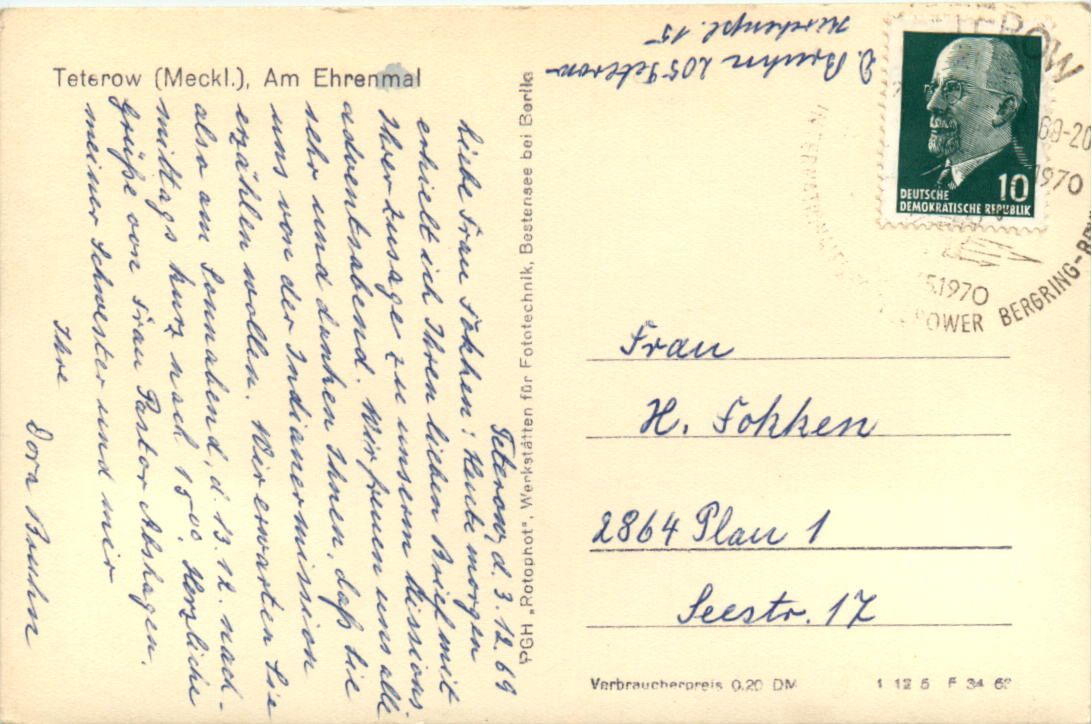 Teterow (Meckl.), Am Ehrenmal
Teterow, d. 3.12.69
Liebe Frau Fokken! Heute morgen
erhielt ich Ihren lieben Brief mit
Ihrer Zusage zu unserm Missions-
adventsabend. Wir freuen uns alle
sehr und danken Ihnen, daß Sie
uns von der Indianermission
erzählen wollen. Wir erwarten Sie
also am Sonnabend, d. 13.12. nach-
mittags kurz nach 15.00. Herzliche
Grüße von Frau Pastor Abshagen.
meiner Schwester und mir
Ihre
Dora Bruhn
PGH „Rotophot", Werkstätten für Fototechnik, Bestensee bei Berlin
D. Bruhn 205 Teterow
Kirchenpl. 15
DEUTSCHE
DEMOKRATISCHE REPUBLIK
10
TETEROW
69-20
1970
1970
BERGRING-
Frau
H. Fokken
2864 Plau 1
Seestr. 17
Verbraucherpreis 0,20 DM
1 12 5 F 34 69